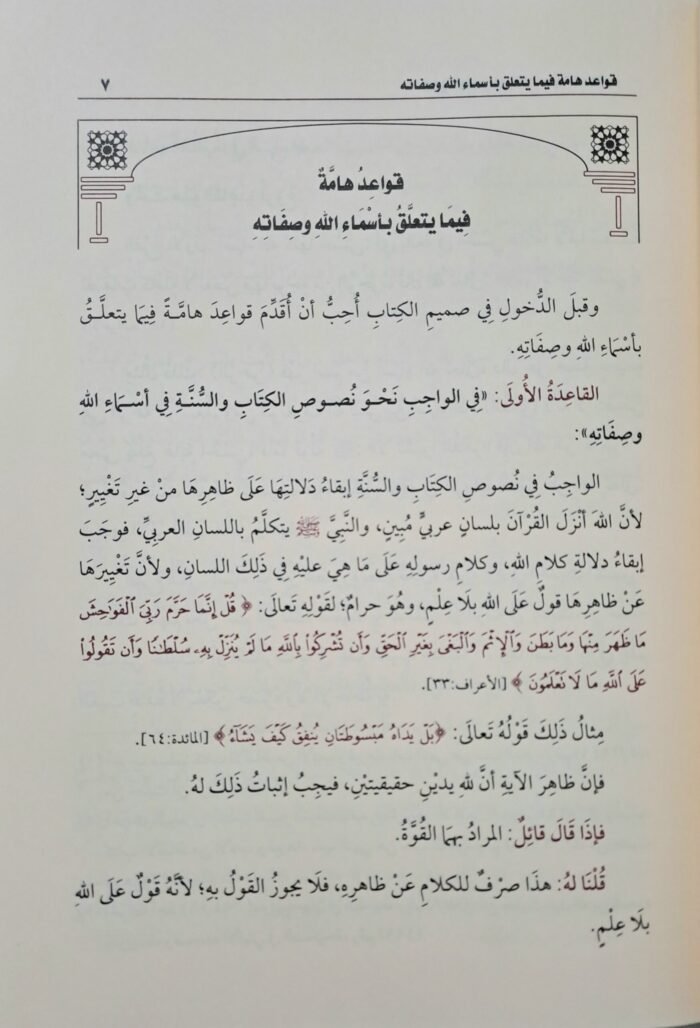 قواعد هامة فيما يتعلق بأسماء الله وصفاته ٧
قواعِدُ هامَّةٌ
فِيمَا يتعلَّقُ بأسْمَاءِ اللهِ وصِفَاتِهِ
وقبلَ الدُّخولِ فِي صميمِ الكِتابِ أُحِبُّ أنْ أُقَدِّمَ قواعِدَ هامَّةً فِيمَا يتعلَّقُ
بأسْمَاءِ اللهِ وصِفَاتِهِ.
القاعِدَةُ الأُولَى: «فِي الواجِبِ نَحْوَ نُصوصِ الكِتَابِ والسُّنَّةِ فِي أسْمَاءِ اللهِ
وصِفَاتِهِ»:
الواجِبُ فِي نُصوصِ الكِتَابِ والسُّنَّةِ إبقاءُ دَلالتِهَا عَلَى ظاهِرِهَا منْ غيرِ تَغْيِيرٍ؛
لأنَّ اللهَ أنْزَلَ القُرْآنَ بلسانٍ عربيٍّ مُبِينٍ، والنَّبِيَّ ﷺ يتكلَّمُ باللسانِ العربِيِّ، فوجَبَ
إبقاءُ دلالةِ كلامِ اللهِ، وكلامِ رسولِهِ عَلَى مَا هِيَ عليْهِ فِي ذَلِكَ اللسانِ، ولأنَّ تَغْيِيرَهَا
عَنْ ظاهِرِهَا قولٌ عَلَى اللهِ بلَا عِلْمٍ، وهُوَ حرامٌ؛ لقوْلِهِ تَعالَى: ﴿ قُلْ إِنَّمَا حَرَّمَ رَبِّىَ ٱلْفَوَٰحِشَ
مَا ظَهَرَ مِنْهَا وَمَا بَطَنَ وَٱلْإِثْمَ وَٱلْبَغْىَ بِغَيْرِ ٱلْحَقِّ وَأَن تُشْرِكُوا۟ بِٱللَّهِ مَا لَمْ يُنَزِّلْ بِهِۦ سُلْطَٰنًا وَأَن تَقُولُوا۟
عَلَى ٱللَّهِ مَا لَا تَعْلَمُونَ ﴾ [الأعراف:٣٣].
مِثالُ ذَلِكَ قَوْلُهُ تَعالَى: ﴿بَلْ يَدَاهُ مَبْسُوطَتَانِ يُنفِقُ كَيْفَ يَشَآءُ﴾ [المائدة:٦٤].
فإنَّ ظاهِرَ الآيةِ أنَّ للهِ يديْنِ حقيقيتيْنِ، فيجِبُ إثباتُ ذَلِكَ لهُ.
فإذَا قَالَ قائِلٌ: المرادُ بهِمَا القُوَّةُ.
قُلْنَا لهُ: هذَا صرْفٌ للكلامِ عَنْ ظاهرِهِ، فلَا يجوزُ القَوْلُ بهِ؛ لأنَّهُ قَوْلٌ عَلَى اللهِ
بلَا عِلْمٍ.